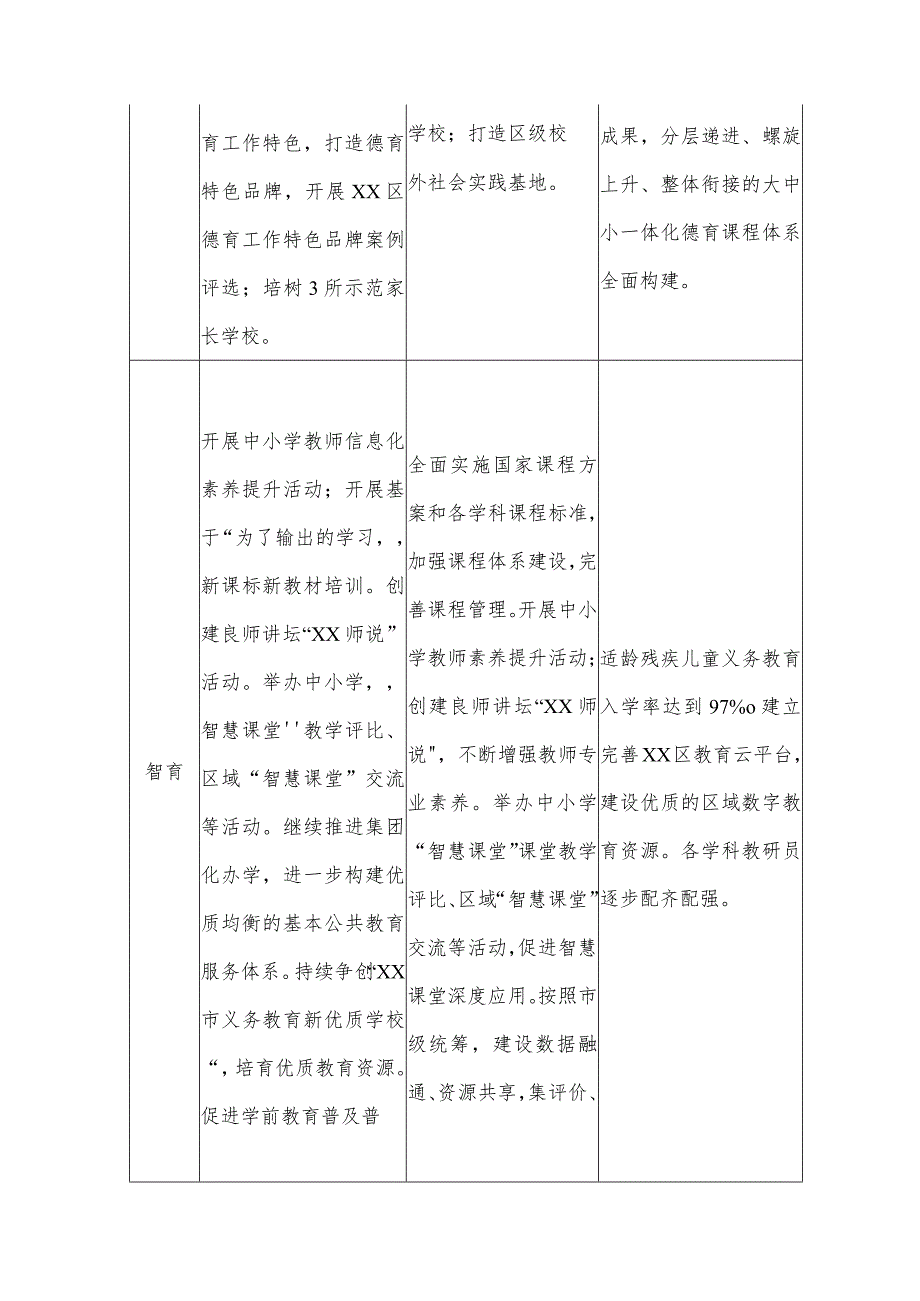 育工作特色，打造德育
特色品牌，开展 XX 区
德育工作特色品牌案例
评选；培树 3 所示范家
长学校。
学校；打造区级校
外社会实践基地。
成果，分层递进、螺旋
上升、整体衔接的大中
小一体化德育课程体系
全面构建。
智育
开展中小学教师信息化
素养提升活动；开展基
于“为了输出的学习，，
新课标新教材培训。创
建良师讲坛“XX 师说”
活动。举办中小学，，
智慧课堂''教学评比、
区域“智慧课堂”交流
等活动。继续推进集团
化办学，进一步构建优
质均衡的基本公共教育
服务体系。持续争创“XX
市义务教育新优质学校
“，培育优质教育资源。
促进学前教育普及普
全面实施国家课程方
案和各学科课程标准，
加强课程体系建设，完
善课程管理。开展中小
学教师素养提升活动；
创建良师讲坛“XX 师
说"，不断增强教师专
业素养。举办中小学
“智慧课堂”课堂教学
评比、区域“智慧课堂”
交流等活动，促进智慧
课堂深度应用。按照市
级统筹，建设数据融
通、资源共享，集评价、
适龄残疾儿童义务教育
入学率达到 97%o 建立
完善 XX 区教育云平台，
建设优质的区域数字教
育资源。各学科教研员
逐步配齐配强。